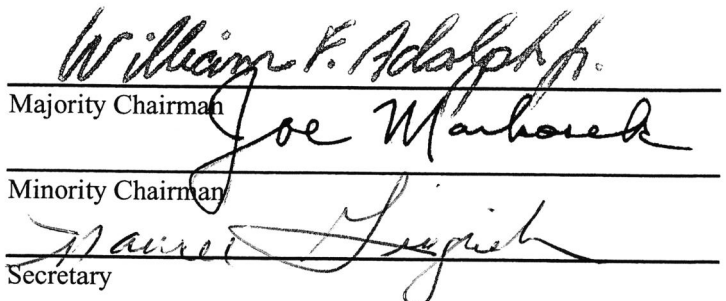 William F. Adolph Jr.
Majority Chairman
Joe Markosek
Minority Chairman
Gingrich
Secretary